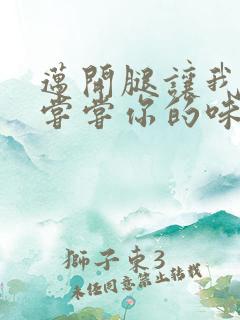 邁開腿讓我
嘗嘗你的味
獅子東3
未經同意禁止轉載